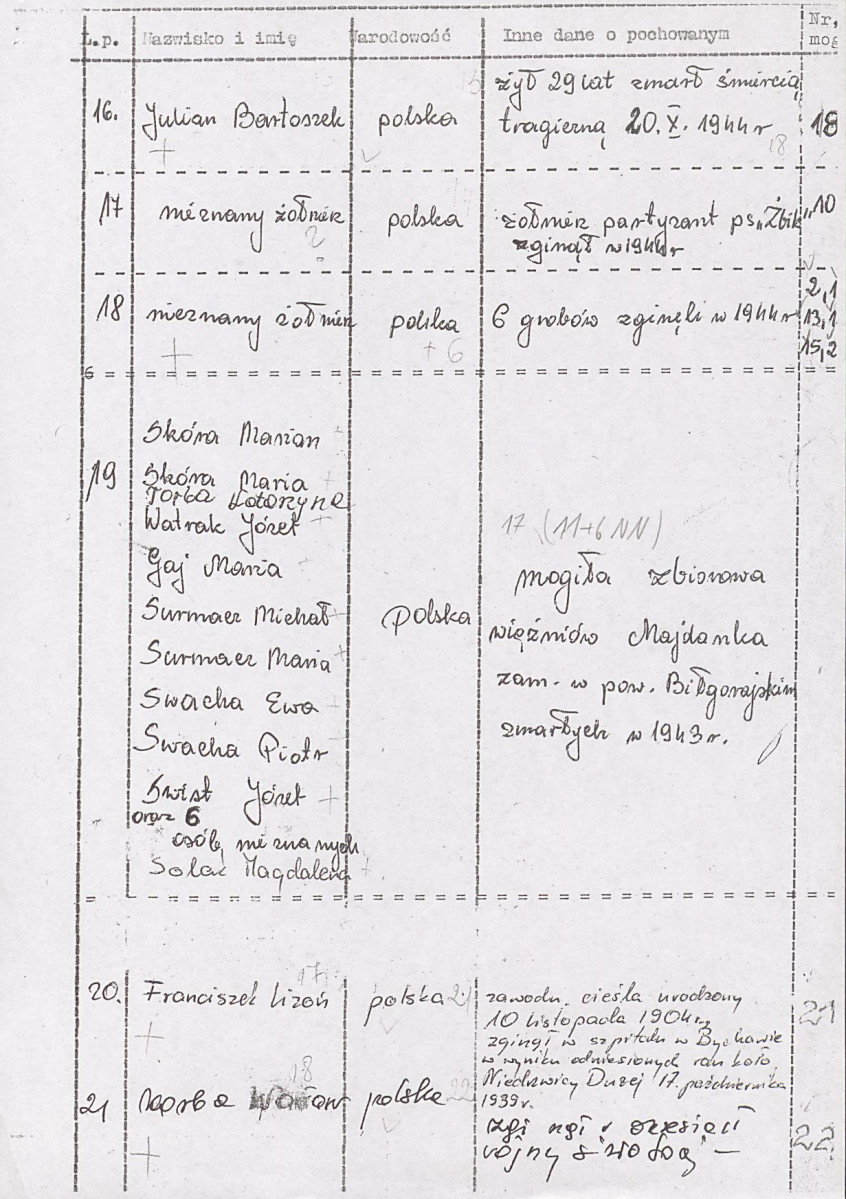 L.p. Nazwisko i imię Narodowość Inne dane o pochowanym Nr,
mog
16. Julian Bartoszek polska żył 29 lat zmarł śmiercią
tragiczną 20.X.1944r 18
18
17 nieznany żołnierz polska żołnierz partyzant ps„Żbik" 10
zginął w 1944r
?
18 nieznany żołnierz polska 6 grobów zginęli w 1944r 2,1
13,1
15,2
+ 6
6
19
Skóra Marian
Skóra Maria
Torba Katarzyna
Watrak Józef
Gaj Maria
Surmacz Michał
Surmacz Maria
Swacha Ewa
Swacha Piotr
Świst Józef
oraz 6
osób nieznanych
Solak Magdalena
polska
17 (11+6 NN)
mogiła zbiorowa
więźniów Majdanka
zam. w pow. Biłgorajskim
zmarłych w 1943r.
17
20. Franciszek Lizoń polska 21 zawodu cieśla urodzony 21
10 listopada 1904r,
zginął w szpitalu w Bychawie
w wyniku odniesionych ran koło
Niedrzwicy Dużej 17. października
1939r.
18
21 Wacław polska 22 22
wojny